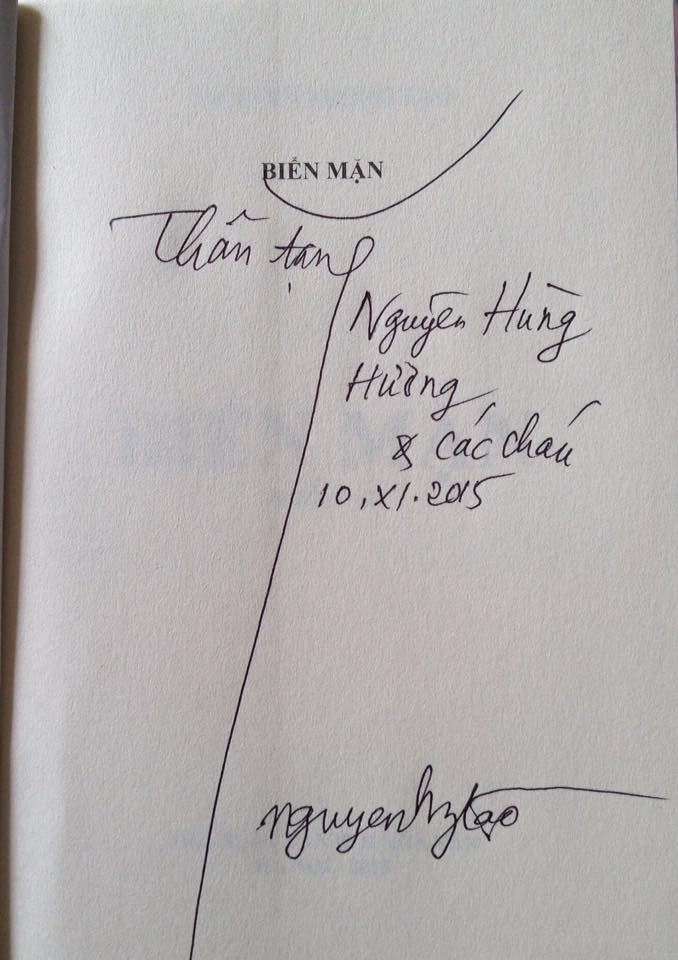 BIỂN MẶN
Thân tặng
Nguyễn Hùng
Hường
& các cháu
10.XI.2015
nguyentrọngtạo